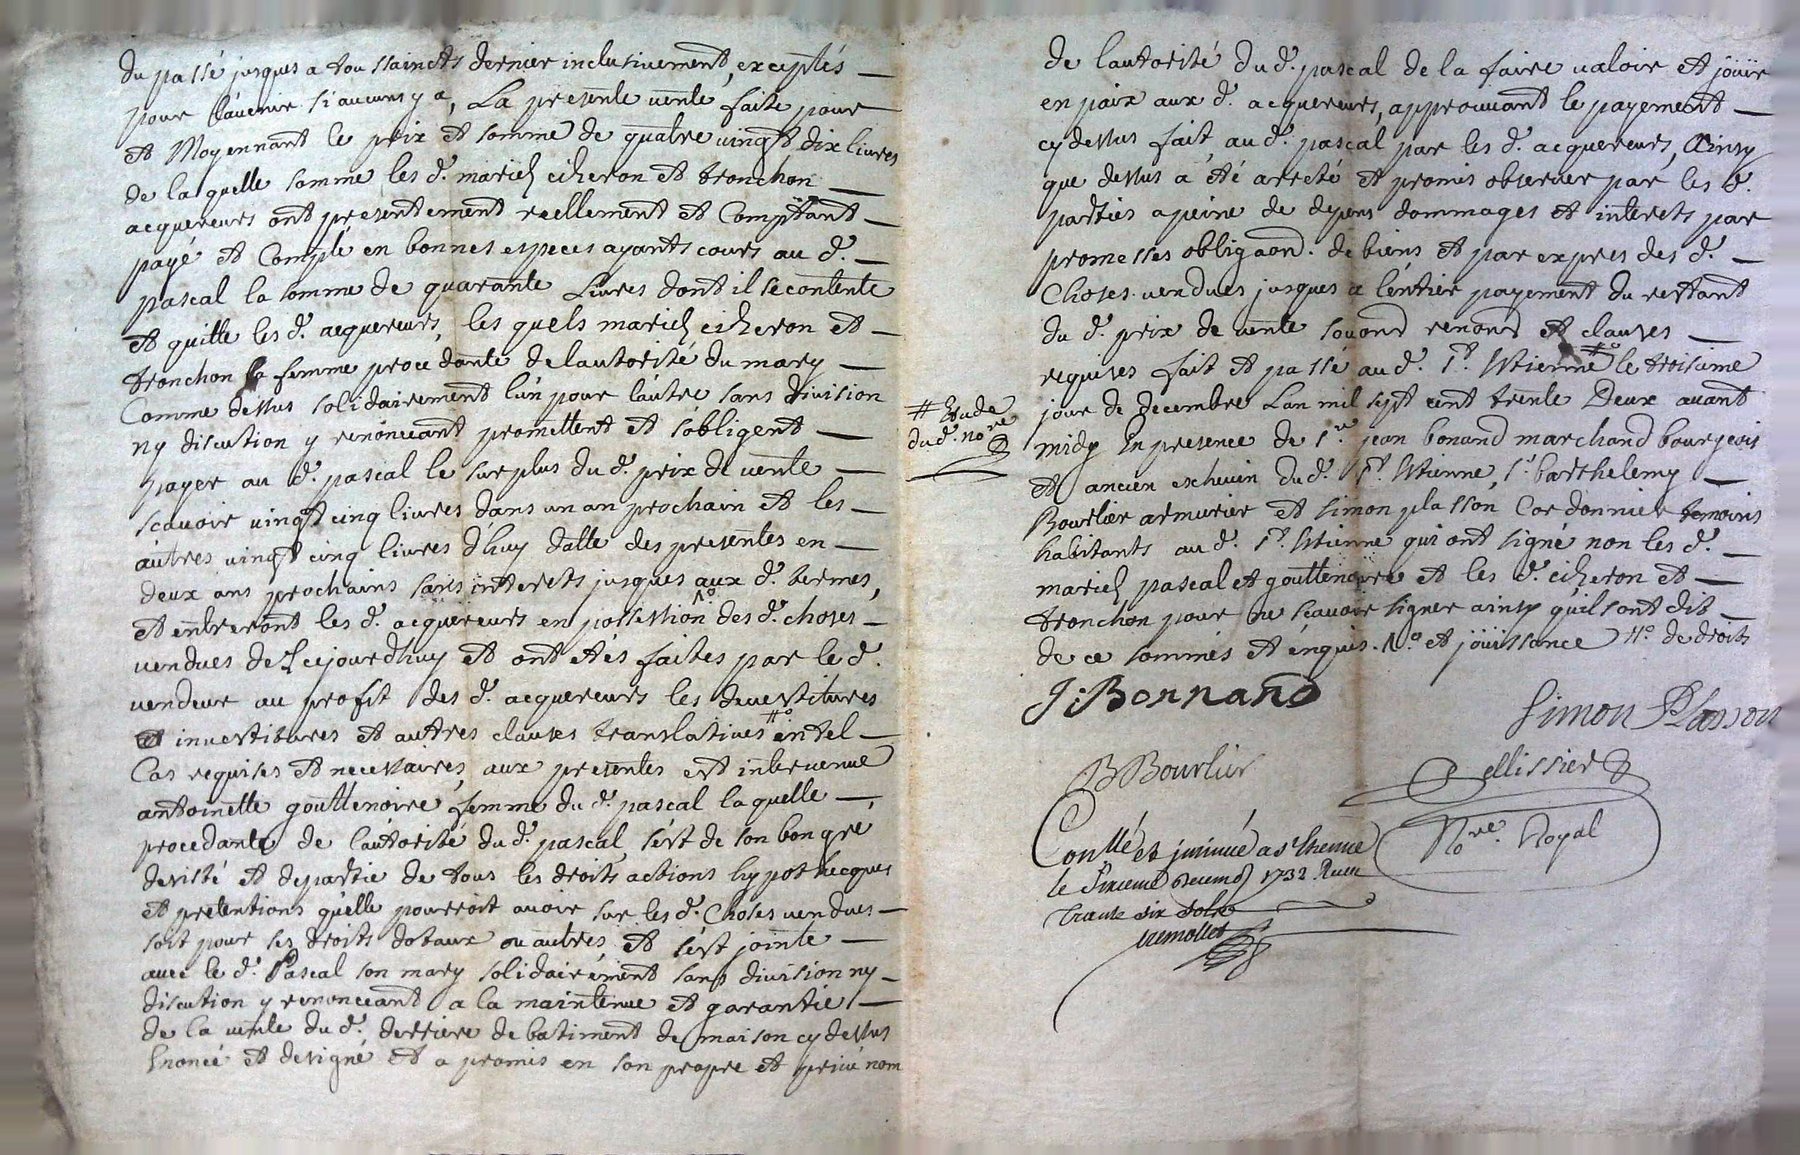 du passé jusques a toussaincts dernier inclusivement, exceptés
pour l'avenir s'aucuns y a, La presente vente faite pour
et Moyennant le prix et somme de quatre vingt dix livres
de laquelle somme les d. mariés ciheron et tronchon
acquereurs ont presentement reellement et Comptant
payé et Compté en bonnes especes ayants cours au d.
pascal la somme de quarante Livres dont il se contente
et quitte les d. acquereurs, les quels mariés ciheron et
tronchon sa femme procedante de lautorité du mary
Comme dessus solidairement l'un pour l'autre sans division
ny discution y renonceant promettent et s'obligent
payer au d. pascal le surplus du d. prix de vente
scavoir vingt cinq livres dans un an prochain et les
autres vingt cinq livres d'huy datte des presentes en
deux ans prochains sans interets jusques aux d. termes,
et entreront les d. acquereurs en possession N.o des d. choses
vendues dez cejourdhuy et ont étés faites par le d.
vendeur au profit des d. acquereurs les devestitures
et investitures et autres clauses translatives #o en tel
Cas requises et necessaires, aux presentes est intervenue
antoinette gouttenoire femme du d. pascal laquelle
procedante de l'autorité du d. pascal s'est de son bon gre
desisté et departie de tous les droits actions hypothecques
et pretentions qu'elle pourroit avoir sur les d. Choses vendues
soit pour ses droits dotaux ou autres et s'est jointe
avec le d. Pascal son mary solidairement sans division ny
discution y renonceant a la maintenue et garantie
de la vente du d. derriere de batiment de maison cy dessus
Enoncé et designé et a promis en son propre et privé nom
de lautorité du d. pascal de la faire valoir et joüir
en paix aux d. acquereurs, approuvant le payement
cy dessus fait au d. pascal par les d. acquereurs, Ainsy
que dessus a été arreté et promis observer par les d.
parties a peine de depens dommages et interets par
promesses obligaon. de biens et par expres des d.
Choses vendues jusques a l'entier payement du restant
du d. prix de vente soumond renond et clauses
requises fait et passé au d. St. Estienne #o le troisieme
jour de decembre Lan mil sept cent trente Deux avant
# Etude
du d. no.re
midy En presence de S.r jean bonand marchand bourgeois
et ancien eschevin du d. St. Estienne, S.r barthelemy
Bourlier armurier et simon plasson Cordonnier temoins
habitants au d. St. Estienne qui ont signé non les d.
mariés pascal et gouttenoire et les d. ciheron et
tronchon pour ne scavoir signer ainsy qu'il ont dit
de ce sommés et enquis. N.o et joüissance #o de droits
J: Bonnand
Simon Plasson
B Bourlier
Pellissier
No.re Royal
Con.llé et insinué a St Etienne
le Sixieme Decemb 1732 Receu
Trente six sols